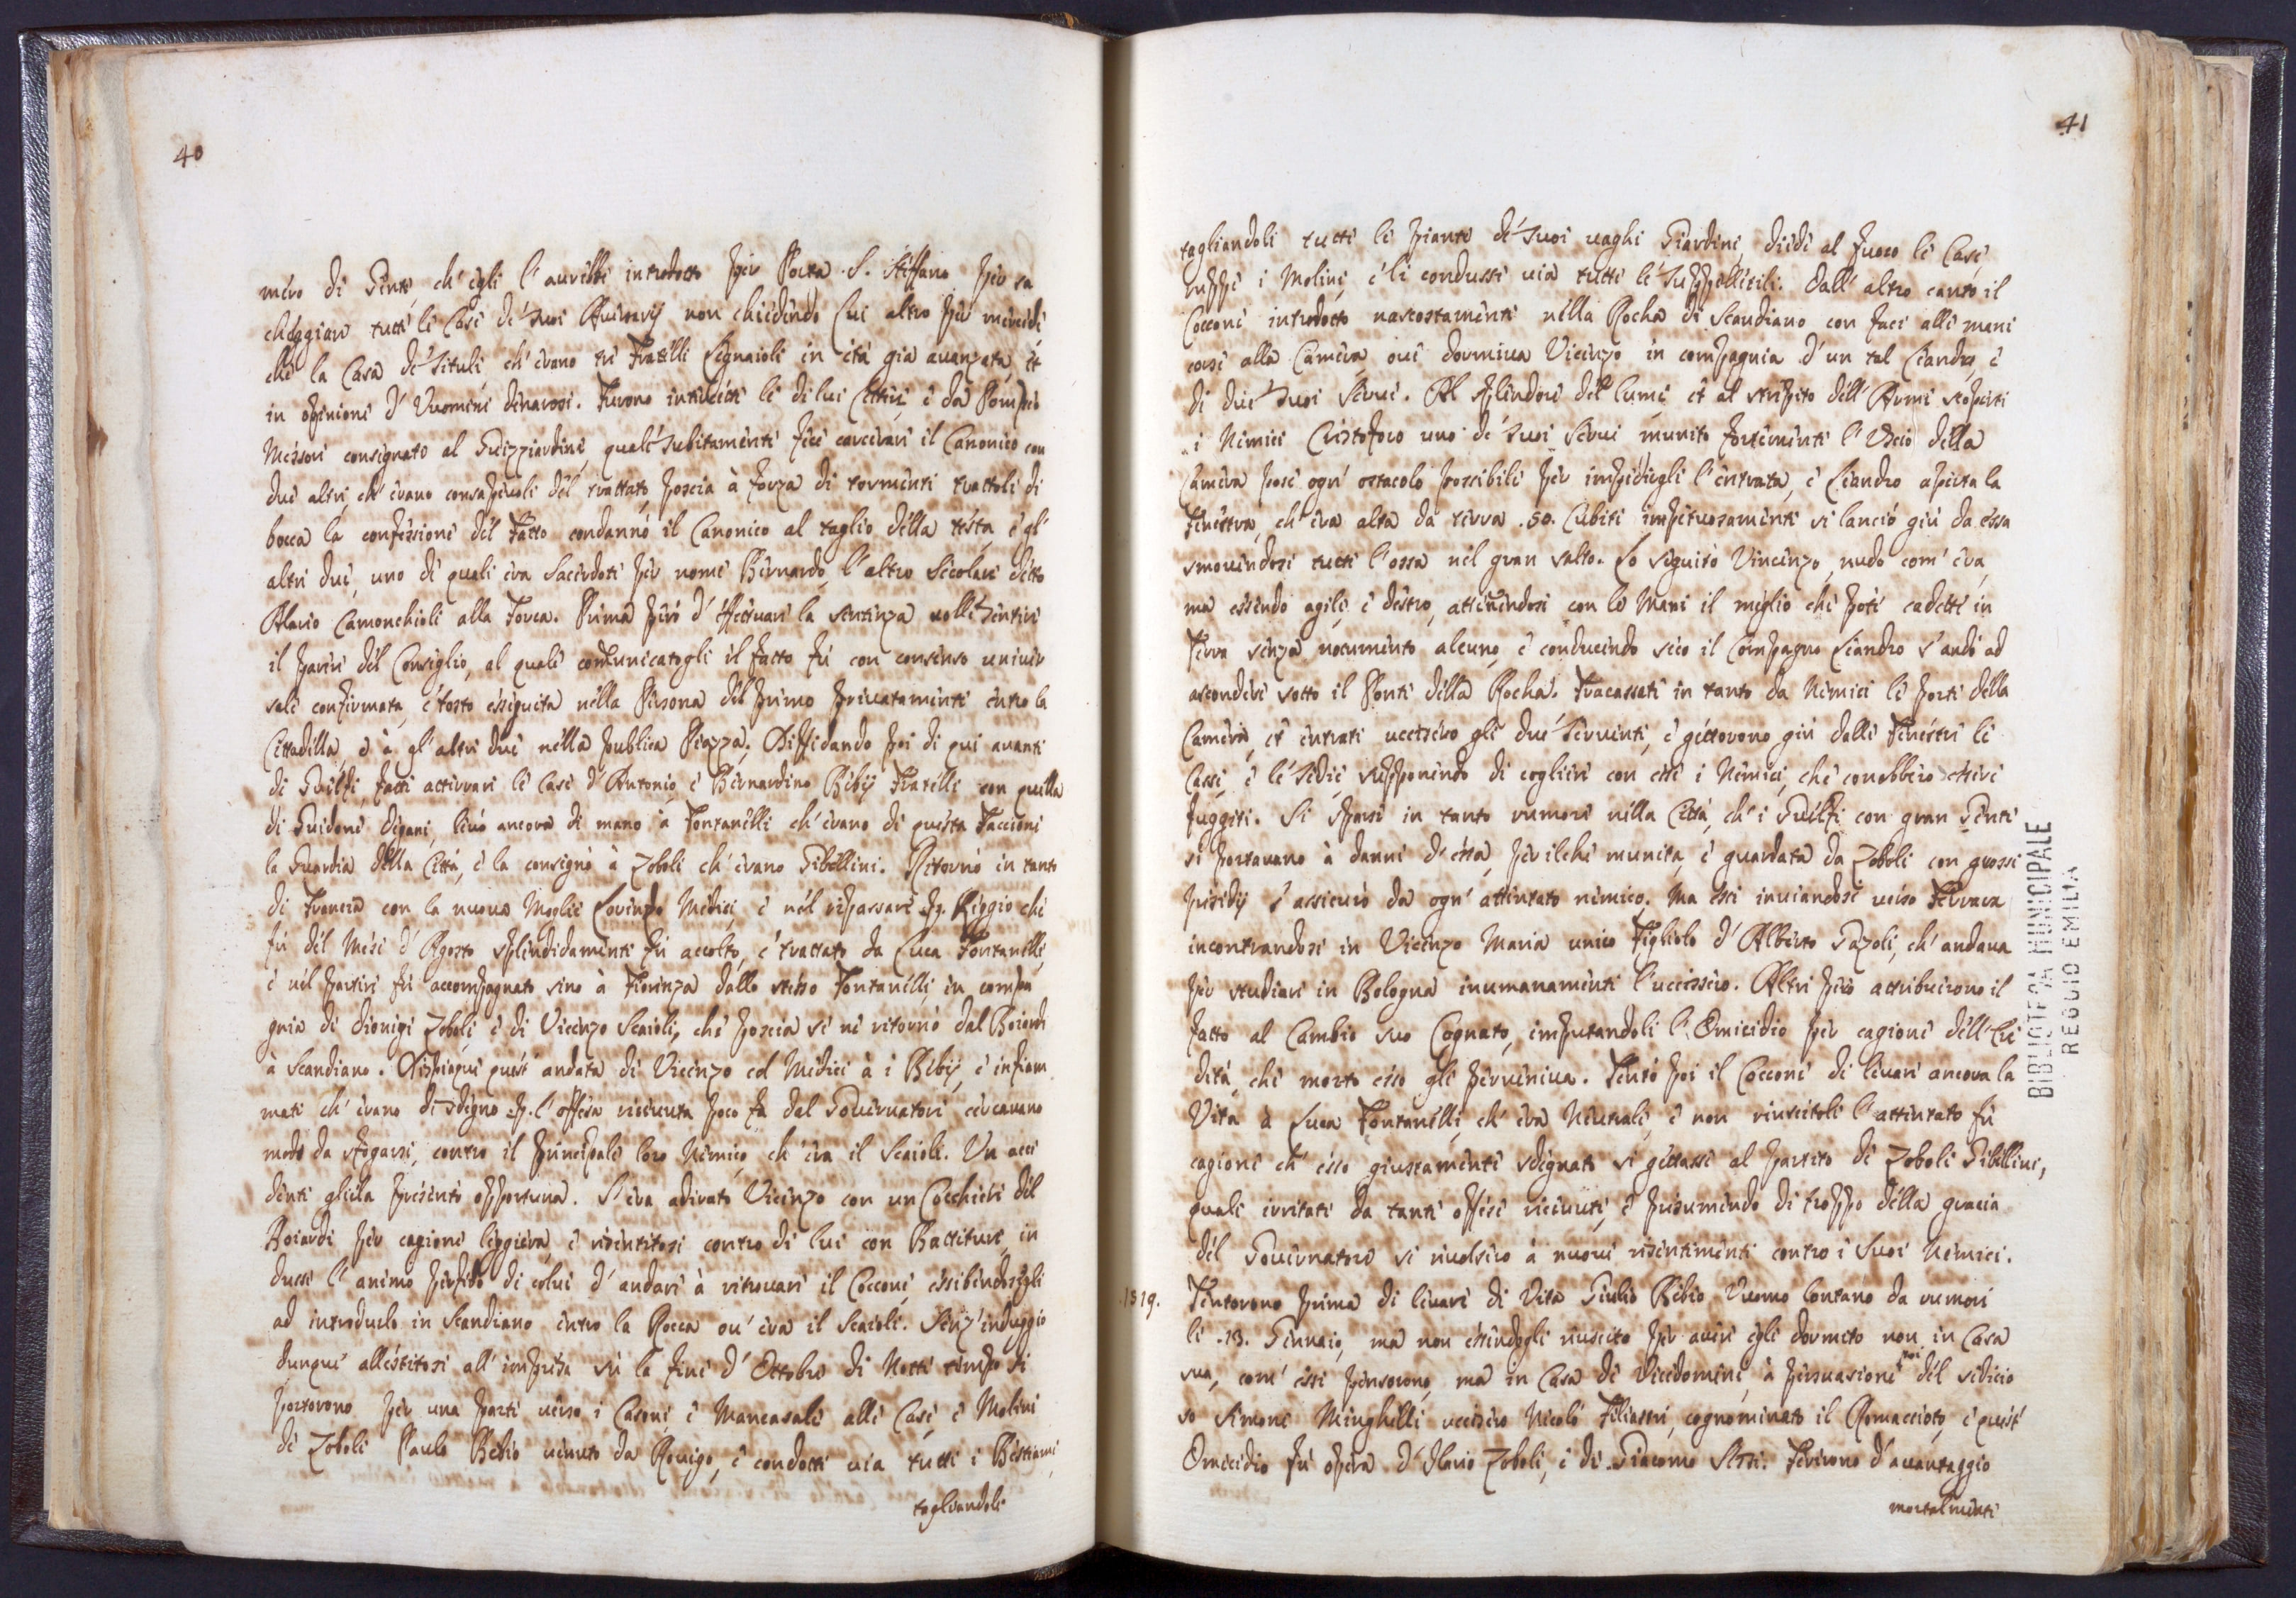 40
mero di Gente, ch'egli l'aurebbe introdotto per Porta S. Steffano per sa
cheggiar tutte le Case de suoi Auuersarij non chiedendo Lui altro per mercede
che la Casa de Situli, ch'erano tre Fratelli Legnaioli in età gia auanzata, et
in opinione d'Vuomini denarosi. Furono intercette le di lui Lettere, e da Pompeo
Messori consignato al Guizziardini, quale subitamente fece carcerare il Canonico con
due altri, ch'erano consapeuoli del trattato, poscia à forza di tormenti trattoli di
bocca la confessione del Fatto condannò il Canonico al taglio della testa, e gl'
altri due, uno de quali era Sacerdote per nome Bernardo, l'altro Secolare detto
Ilario Camonchioli alla Forca. Prima però d'effettuare la sentenza uolle sentire
il parere del Consiglio, al quale comunicatogli il fatto fù con consenso uniuer
sale confirmata, e tosto esseguita nella Persona del primo priuatamente entro la
Cittadella, e à gl'altri due nella publica Piazza. Diffidando poi di qui auanti
di Guelfi, fatte atterrare le Case d'Antonio, e Bernardino Bebij Fratelli con quella
di Guidone Degani, leuò ancora di mano à Fontanelli ch'erano di questa Faccione
la Guardia della Città, e la consignò à Zoboli ch'erano Gibellini. Ritornò in tanto
di Francia con la nuoua Moglie Lorenzo Medici, e nel ripassare p. Reggio che
fù del Mese d'Agosto splendidamente fù accolto, e trattato da Luca Fontanelli,
e nel partire fù accompagnato sino à Fiorenza dallo stesso Fontanelli, in compa
gnia di Dionigi Zoboli e di Vicenzo Scaioli, che poscia se ne ritornò dal Boiardi
à Scandiano. Dispiaque quest'andata di Vicenzo col Medici à i Bebij, e infiam
mati ch'erano di sdegno p. l'offesa riceuuta poco fà dal Gouernatore, cercauano
modo da sfogarsi, contro il principale loro Nemico, ch'era il Scaioli. Un acci
dente gliela presentò opportuna. S'era adirato Vicenzo con un Cocchiere del
Boiardi per cagione leggiera, e risentitosi contro di lui con Battiture, in
dusse l'animo perfido di colui d'andare à ritrouare il Cocconi, essibendosegli
ad introdurlo in Scandiano entro la Rocca ou'era il Scaioli. Senz'induggio
dunque allestitosi all'impresa sù la fine d'Ottobre di Notte tempo si
portorono per una parte uerso i Casoni e Mancasale alle Case, e Molini
de Zoboli Paulo Bebio uenuto da Rouigo, e condotti uia tutti i Bestiami,
togliandoli
41
tagliandoli tutte le piante de suoi uaghi Giardini, diede al fuoco le Case,
ruppe i Molini, e li condusse uia tutte le suppellettili. Dall'altro canto il
Cocconi introdotto nascostamente nella Rocha di Scandiano con faci alle mani
corse alla Camera, oue dormiua Vicenzo in compagnia d'un tal Leandro, e
di due suoi Serui. Al splendore del lume, et al strepito dell'Armi scoperti
i Nemici Cristoforo uno de suoi Serui munito fortemente l'Uscio della
Camera pose ogni ostacolo possibile per impedirgli l'entrata, e Leandro aperta la
Finestra, ch'era alta da terra .50. Cubiti impetuosamente si lanciò giù da essa
smouendosi tutte l'ossa nel gran salto. Lo seguitò Vincenzo, nudo com'era,
ma essendo agile, e destro, attenendosi con le Mani il meglio che potè cadette in
Terra senza nocumento alcuno, e conducendo seco il Compagno Leandro s'andò ad
ascondere sotto il Ponte della Rocha. Fracassate in tanto da Nemici le porte della
Camera, et entrati uccisero gli due seruenti, e gettorono giù dalle Finestre le
Casse, e le sedie, supponendo di cogliere con esse i Nemici, che conobbero essere
fuggiti. Si sparse in tanto rumore nella Città, ch'i Guelfi con gran Gente
si portauano à danni d'essa, per il che munita, e guardata da Zoboli con grossi
presidij s'assicurò da ogn'attentato nemico. Ma essi inuiandosi uerso Ferrara
incontrandosi in Vicenzo Maria unico Figliolo d'Alberto Gazoli, ch'andaua
per studiare in Bologna inumanamente l'uccisero. Altri però attribuirono il
fatto al Cambio suo Cognato, imputandoli l'Omicidio per cagione dell'Ere
dità, che morto esso gli perueniua. Tentò poi il Cocconi di leuare ancora la
Vita à Luca Fontanelli, ch'era Neutrale, e non riuscitoli l'attentato fù
cagione ch'esso giustamente sdegnato si gettasse al partito de Zoboli Gibellini,
quali irritati da tante offese riceuute, e presumendo di troppo della gracia
del Gouernatore si riuolsero à nuoui risentimenti contro i suoi Nemici.
1519. Tentorono prima di leuare di Vita Giulio Bebio Vuomo lontano da rumori
li .13. Gennaio, ma non essendogli riuscito per auere egli dormito non in Casa
sua, com'essi pensorono, ma in Casa de Vicedomini, à persuasione poi del sedicio
so Simone Minghelli uccisero Nicolò Filiastri, cognominato il Romacciotto, e quest'
Omicidio fù opera d'Ilario Zoboli, e di Giacomo Sessi. Ferirono d'auantaggio
mortalmente
BIBLIOTECA MUNICIPALE
REGGIO EMILIA